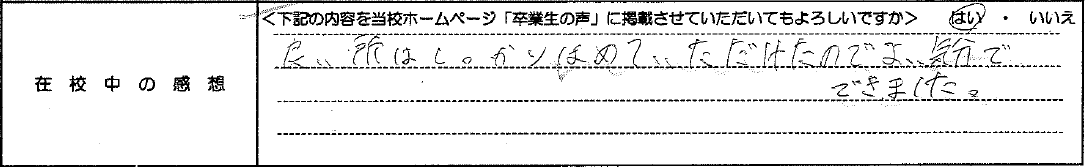 <下記の内容を当校ホームページ「卒業生の声」に掲載させていただいてもよろしいですか> はい ・ いいえ
在校中の感想
良い所はしっかりほめていただけたのでよい気分で
できました。